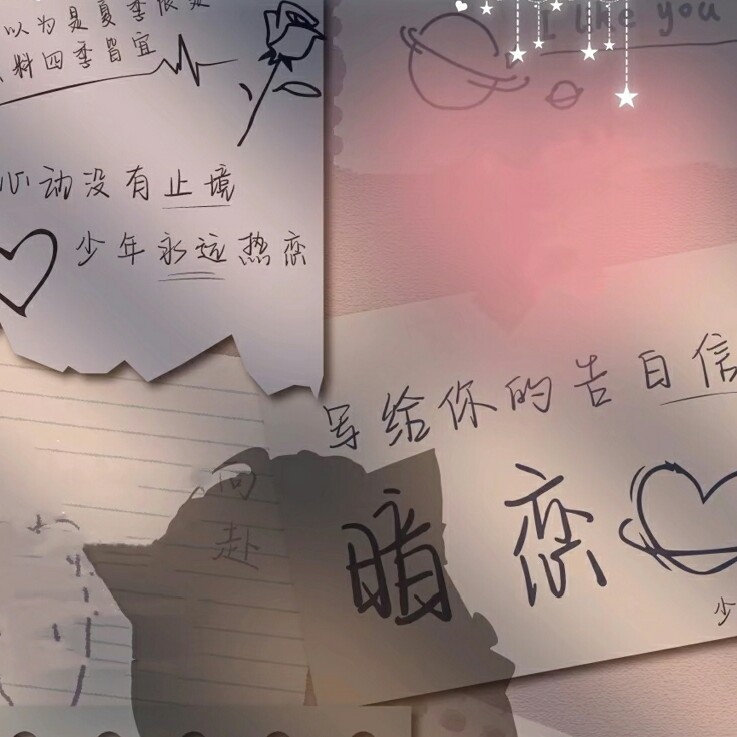 以为是夏季限定
料四季皆宜
心动没有止境
少年永远热恋
I like you
写给你的告白信
暗恋
向
赴
少